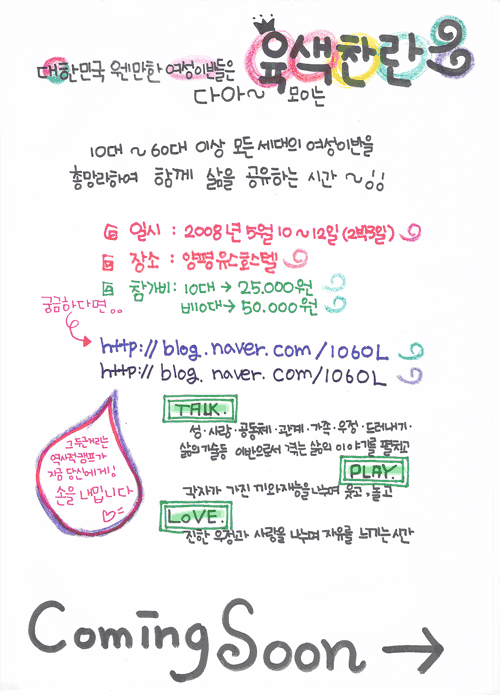 육색찬란
대한민국 웬만한 여성이반들은
다아~ 모이는
10대 ~ 60대 이상 모든 세대의 여성이반을
총망라하여 함께 삶을 공유하는 시간 ~!!
일시 : 2008년 5월 10~12일 (2박3일)
장소 : 양평유스호스텔
참가비 : 10대 → 25.000원
비10대 → 50.000원
궁금하다면..
http://blog.naver.com/1060L
http://blog.naver.com/1060L
TALK.
성·사랑·공동체·관계·가족·우정·드러내기·
삶의기술등 이반으로서 겪는 삶의 이야기를 펼치고
그 두근거리는
역사적 캠프가
지금 당신에게!
손을 내밉니다
PLAY.
각자가 가진 끼와재능을나누며 웃고, 놀고
LOVE.
진한 우정과 사랑을 나누며 자유를 느끼는시간
Coming Soon →